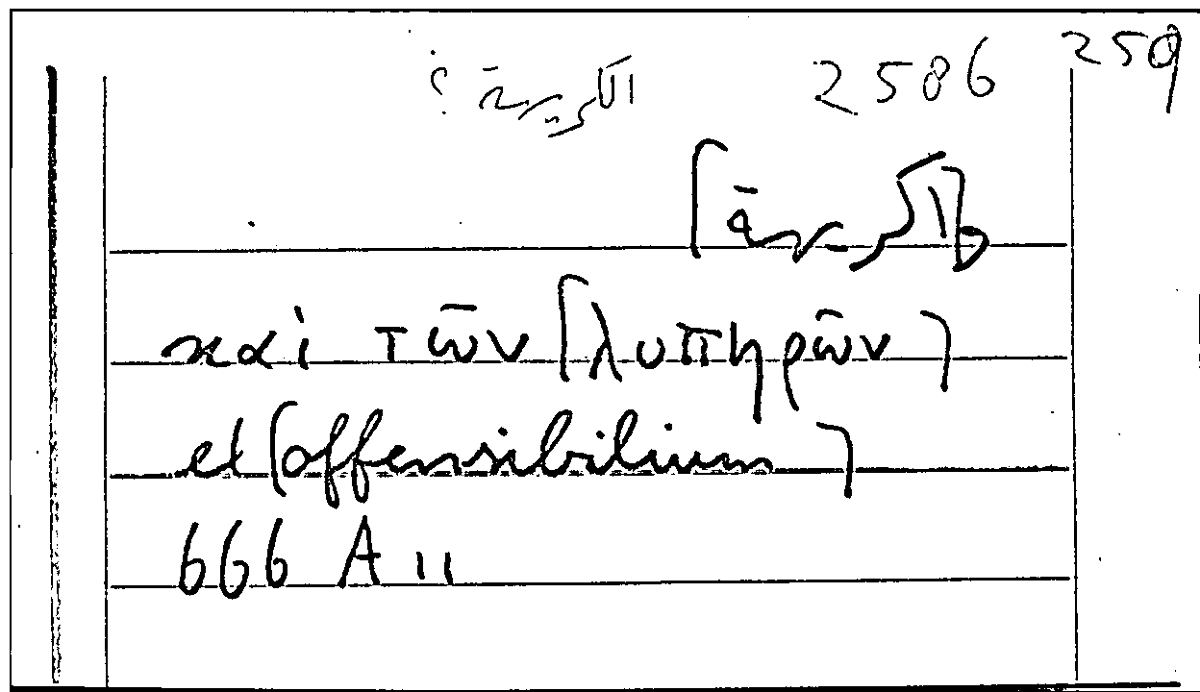 2586 259
καὶ τῶν ⌈λυπηρῶν⌉
et ⌈offensibilium⌉
666 A 11